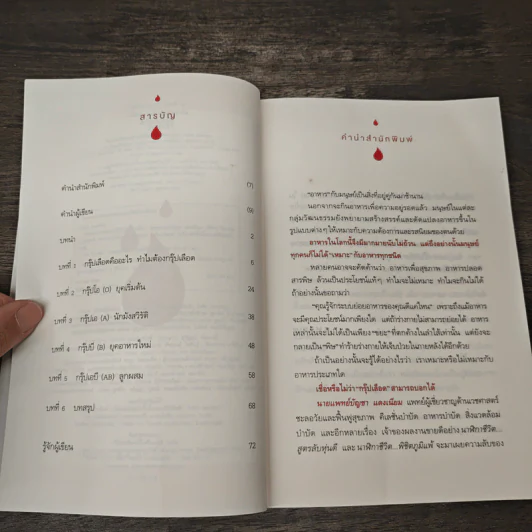 สารบัญ
คำนำสำนักพิมพ์ (7)
คำนำผู้เขียน (9)
บทนำ 2
บทที่ 1 กรุ๊ปเลือดคืออะไร ทำไมต้องกรุ๊ปเลือด 6
บทที่ 2 กรุ๊ปโอ (O) ยุคเริ่มต้น 24
บทที่ 3 กรุ๊ปเอ (A) นักมังสวิรัติ 38
บทที่ 4 กรุ๊ปบี (B) ยุคอาหารใหม่ 48
บทที่ 5 กรุ๊ปเอบี (AB) ลูกผสม 58
บทที่ 6 บทสรุป 68
รู้จักผู้เขียน 72
คำนำสำนักพิมพ์
"อาหาร"กับมนุษย์เป็นสิ่งที่อยู่คู่กันมาช้านาน
นอกจากจะกินอาหารเพื่อความอยู่รอดแล้ว มนุษย์ในแต่ละ
กลุ่มวัฒนธรรมยังพยายามสร้างสรรค์และดัดแปลงอาหารขึ้นใน
รูปแบบต่างๆ ให้เหมาะกับความต้องการและรสนิยมของตนด้วย
อาหารในโลกนี้จึงมีมากมายนับไม่ถ้วน แต่ถึงอย่างนั้นมนุษย์
ทุกคนก็ไม่ได้ "เหมาะ" กับอาหารทุกชนิด
หลายคนอาจจะคัดค้านว่า อาหารเพื่อสุขภาพ อาหารปลอด
สารพิษ ล้วนเป็นประโยชน์แท้ๆ ทำไมจะไม่เหมาะ ทำไมจะกินไม่ได้
ถ้าอย่างนั้นขอถามว่า
"คุณรู้จักระบบย่อยอาหารของคุณดีแค่ไหน" เพราะถึงแม้อาหาร
จะมีคุณประโยชน์มากเพียงใด แต่ถ้าร่างกายไม่สามารถย่อยได้ อาหาร
เหล่านั้นก็จะไม่ได้เป็นเพียง "ขยะ" ที่ตกค้างในลำไส้เท่านั้น แต่ยังจะ
กลายเป็น "พิษ" ทำร้ายร่างกายให้เจ็บป่วยในภายหลังได้อีกด้วย
ถ้าเป็นอย่างนั้นจะรู้ได้อย่างไรว่า เราเหมาะหรือไม่เหมาะกับ
อาหารประเภทใด
เชื่อหรือไม่ว่า "กรุ๊ปเลือด" สามารถบอกได้
นายแพทย์บัญชา แดงเนียม แพทย์ผู้เชี่ยวชาญด้านเวชศาสตร์
ชะลอวัยและฟื้นฟูสุขภาพ คีเลชั่นบำบัด อาหารบำบัด สิ่งแวดล้อม
บำบัด และอีกหลายเรื่อง เจ้าของผลงานขายดีอย่าง นาฬิกาชีวิต...
สูตรลับหุ่นดี และ นาฬิกาชีวิต...พิชิตภูมิแพ้ จะมาเผยความลับของ